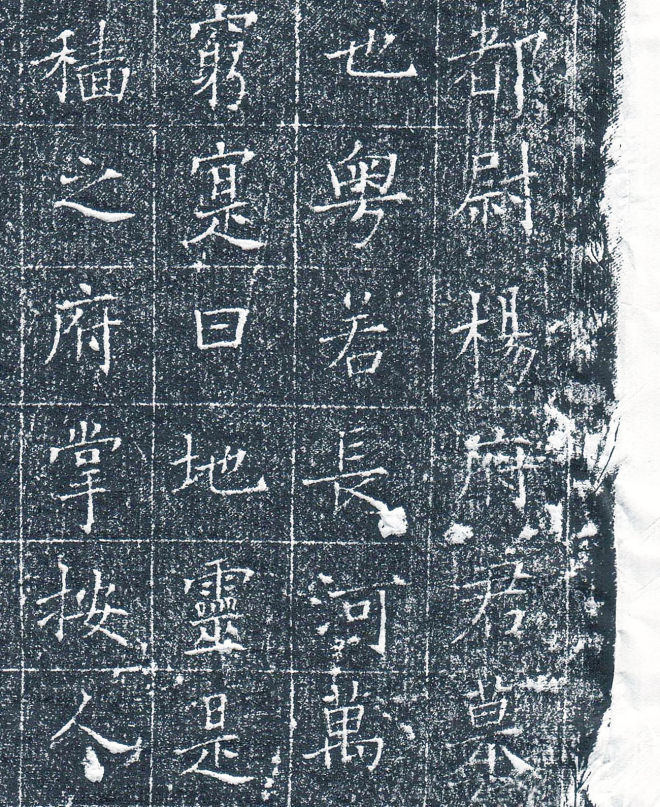 都尉楊府君墓
也粵若長河萬
窮寔曰地靈是
穡之府掌按